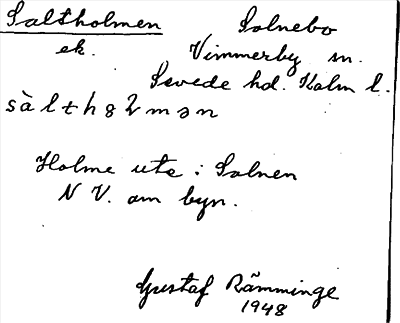 Saltholmen Solnebo
ek. Vimmerby sn.
Sevede hd. Kalm l.
Holme ute i Solnen
N V. om byn.
Gustaf Rämminge
1948